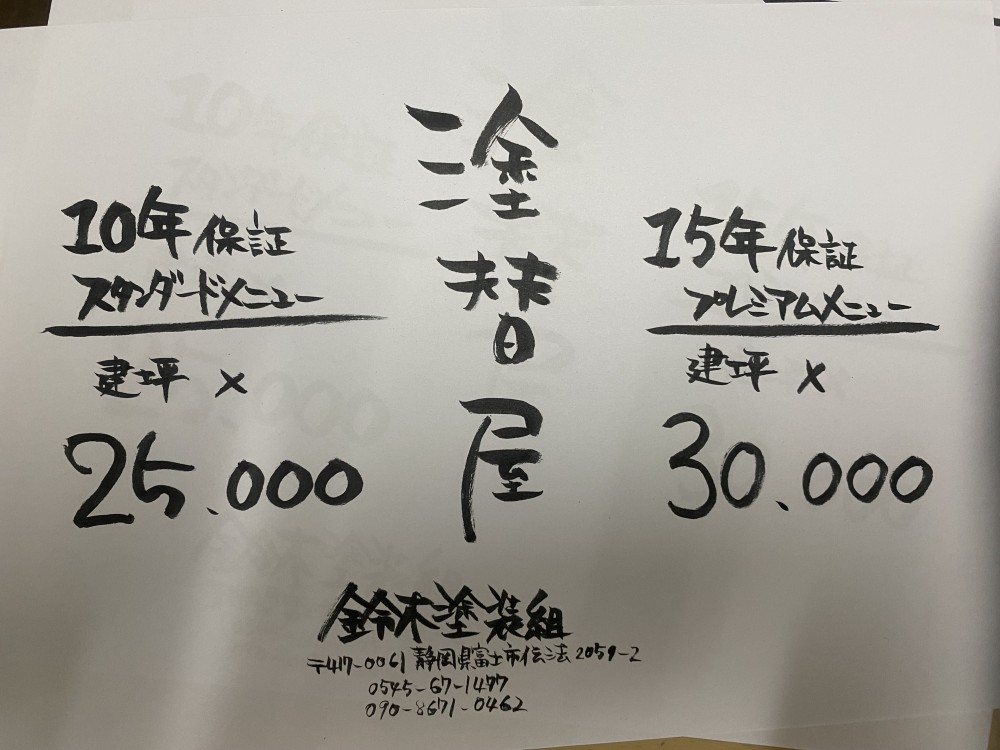 塗替屋
10年保証
スタンダードメニュー
建坪 ×
25,000
15年保証
プレミアムメニュー
建坪 ×
30,000
鈴木塗装組
〒417-0061 静岡県富士市伝法2059-2
0545-67-1477
090-8671-0462